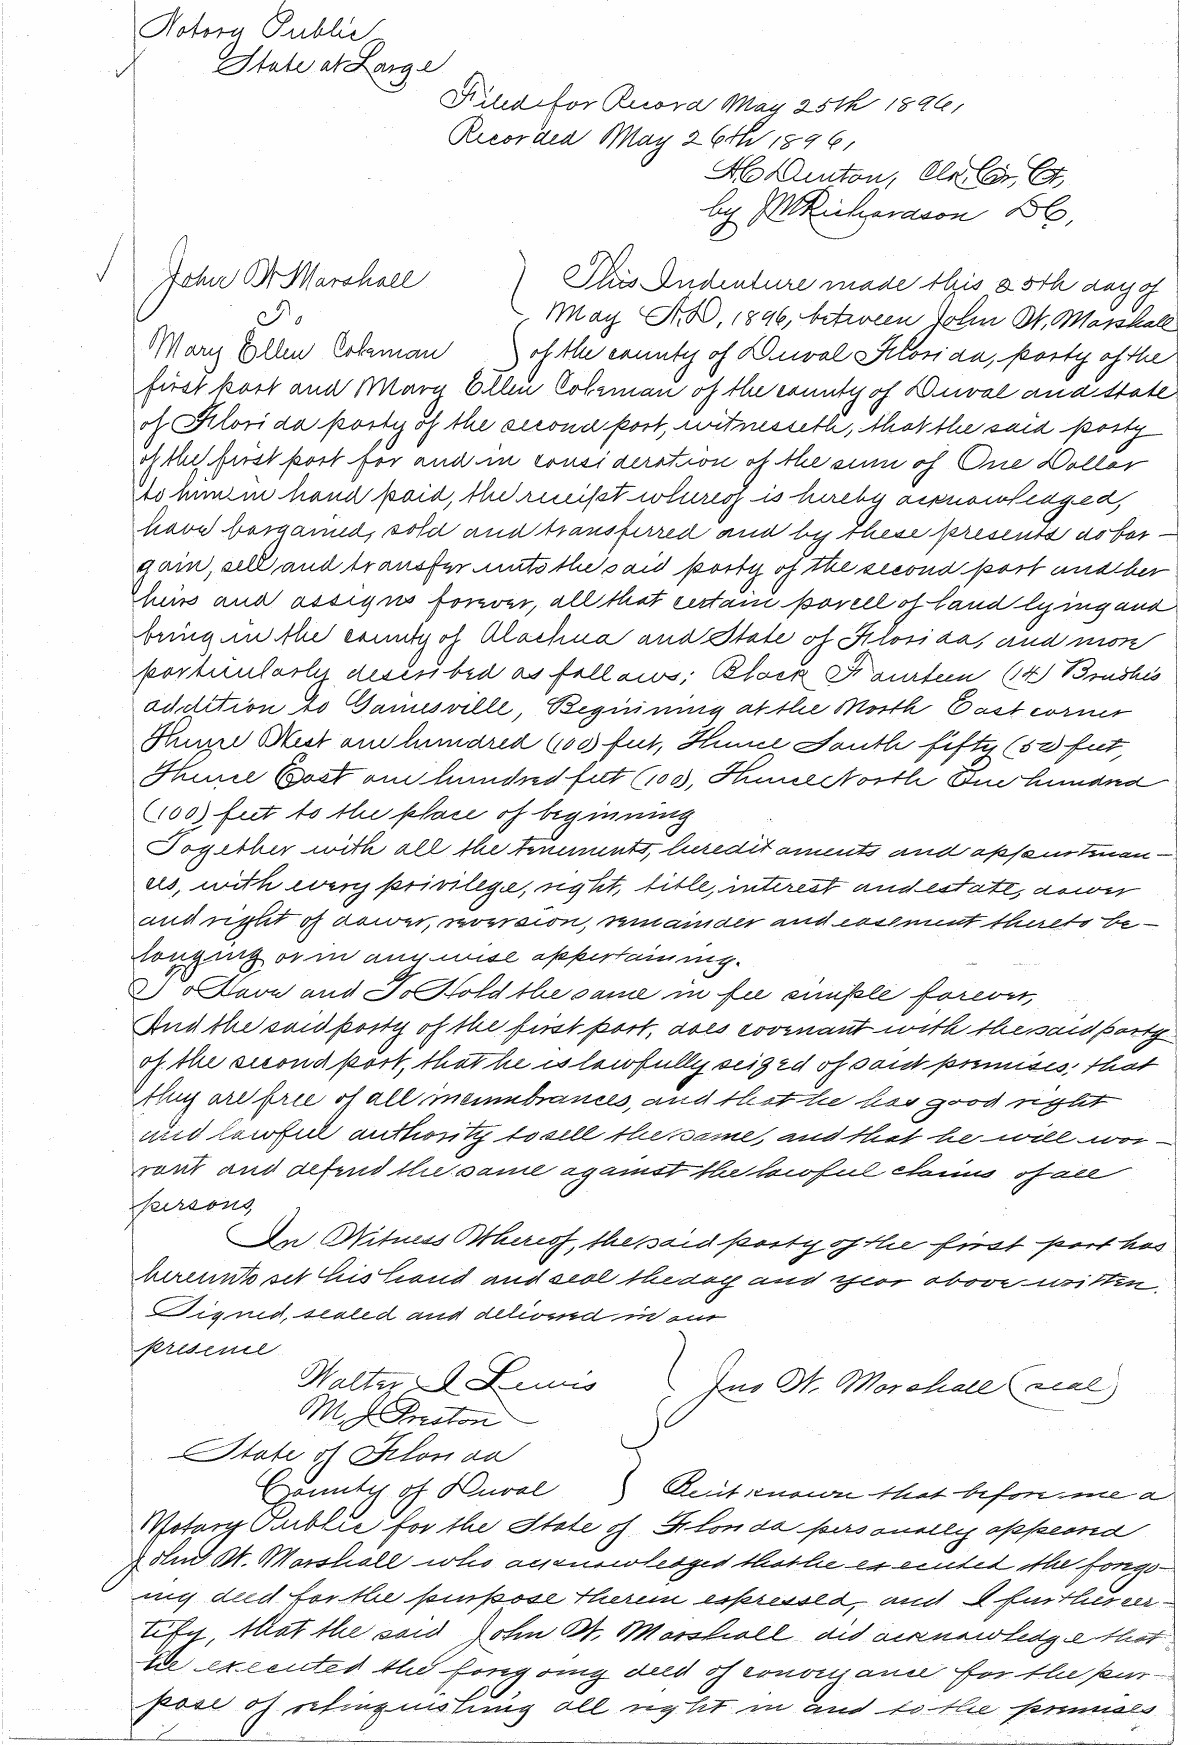 Notary Public
State at Large
Filed for Record May 25th 1896,
Recorded May 26th 1896,
H C Denton, Clk. Cir, Ct,
by J M Richardson D C,
John W Marshall
To
Mary Ellen Coleman
This Indenture made this 25th day of
May A.D, 1896, between John W. Marshall
of the county of Duval Florida, party of the
first part and Mary Ellen Coleman of the county of Duval and state
of Florida party of the second part, witnesseth, that the said party
of the first part for and in consideration of the sum of One Dollar
to him in hand paid, the receipt whereof is hereby acknowledged,
have bargained, sold and transferred and by these presents do bar-
gain, sell and transfer unto the said party of the second part and her
heirs and assigns forever, all that certain parcell of land lying and
being in the county of Alachua and State of Florida, and more
particularly described as follows; Block Fourteen (14) Brush's
addition to Gainesville, Beginning at the North East corner
Thence West one hundred (100) feet, Thence South fifty (50) feet,
Thence East one hundred feet (100), Thence North One hundred
(100) feet to the place of beginning
Together with all the tenements, heredit aments and appurtenan-
ces, with every privilege, right, title, interest and estate, dower
and right of dower, reversion, remainder and easement thereto be-
longing or in any wise appertaining.
To Have and To Hold the same in fee simple forever,
And the said party of the first part, does covenant with the said party
of the second part, that he is lawfully seized of said premises; that
they are free of all incumbrances, and that he has good right
and lawful authority to sell the same, and that he will war-
rant and defend the same against the lawful claims of all
persons,
In Witness Whereof, the said party of the first part has
hereunto set his hand and seal the day and year above written.
Signed, sealed and delivered in our
presence
Walter I Lewis
M. J. Preston
Jno W. Marshall (seal)
State of Florida
County of Duval
Be it known that before me a
Notary Public for the State of Florida personally appeared
John W. Marshall who acknowledged that he executed the forego-
ing deed for the purpose therein expressed, and I further cer-
tify, that the said John W. Marshall did acknowledge that
he executed the foregoing deed of conveyance for the pur-
pose of relinquishing all right in and to the premises